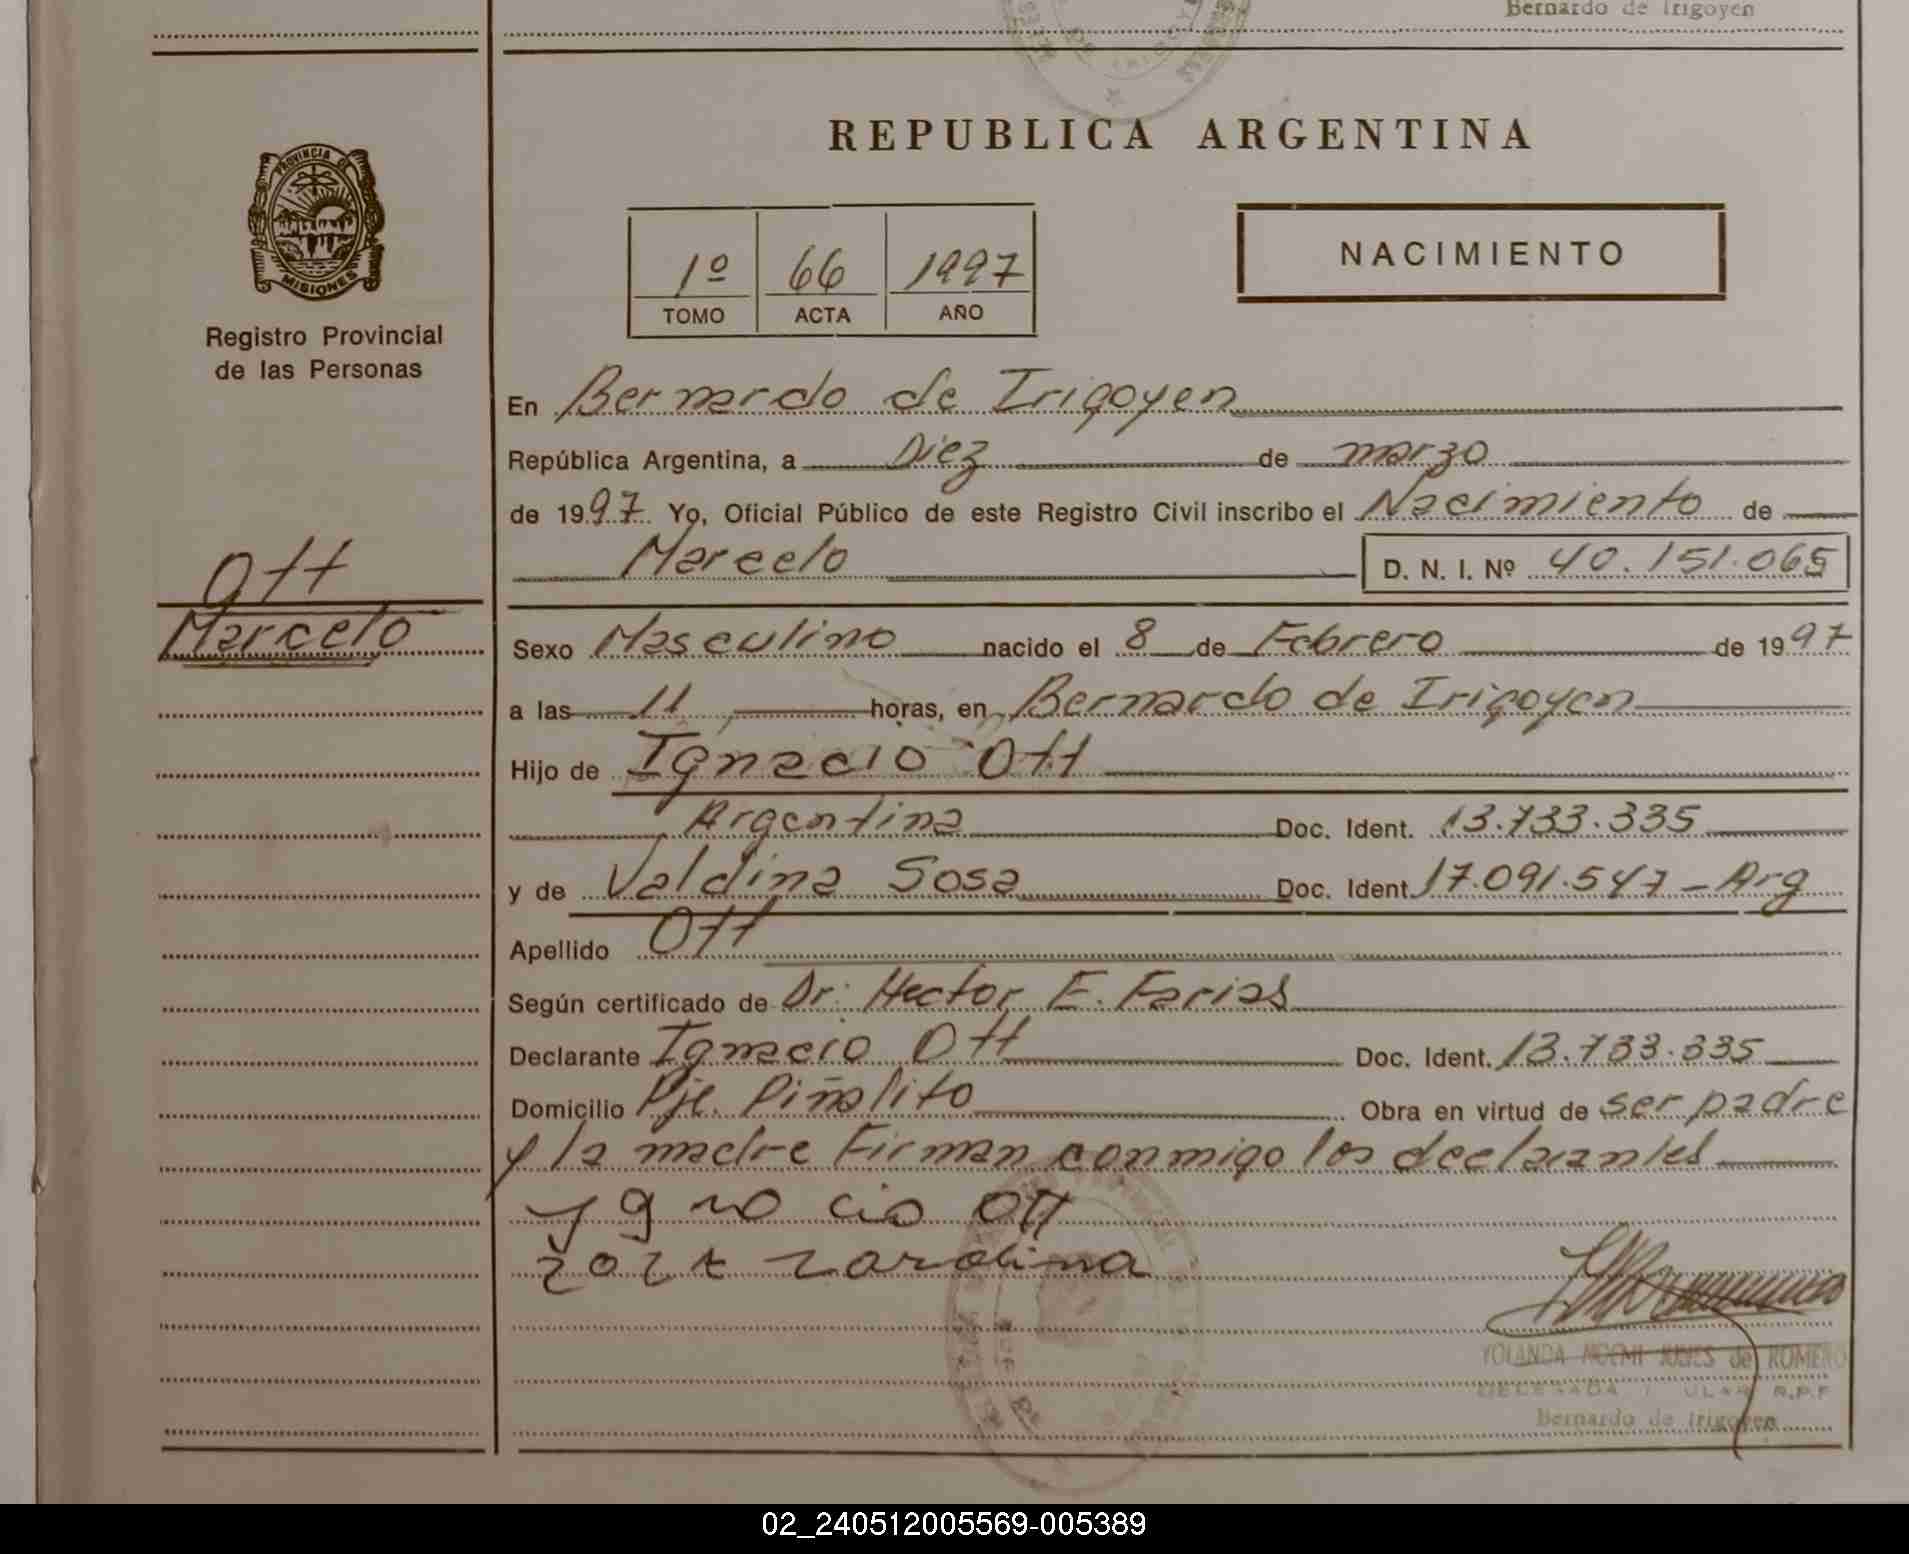 Bernardo de Irigoyen
REPUBLICA ARGENTINA
PROVINCIA DE
MISIONES
Registro Provincial
de las Personas
1º 66 1997
TOMO ACTA AÑO
NACIMIENTO
En Bernardo de Irigoyen
República Argentina, a Diez de marzo
de 1997 Yo, Oficial Público de este Registro Civil inscribo el Nacimiento de
Marcelo D. N. I. Nº 40.151.065
Ott
Marcelo
Sexo Masculino nacido el 8 de Febrero de 1997
a las 11 horas, en Bernardo de Irigoyen
Hijo de Ignacio Ott
Argentina Doc. Ident. 13.733.335
y de Valdina Sosa Doc. Ident. 17.091.547 - Arg
Apellido Ott
Según certificado de Dr: Hector E. Farias
Declarante Ignacio Ott Doc. Ident. 13.733.335
Domicilio Pje. Piñalito Obra en virtud de ser padre
y la madre Firman conmigo los declarantes
ygnacio Ott
YOLANDA NOEMI de ROMERO
R.P.P
Bernardo de Irigoyen
02_240512005569-005389